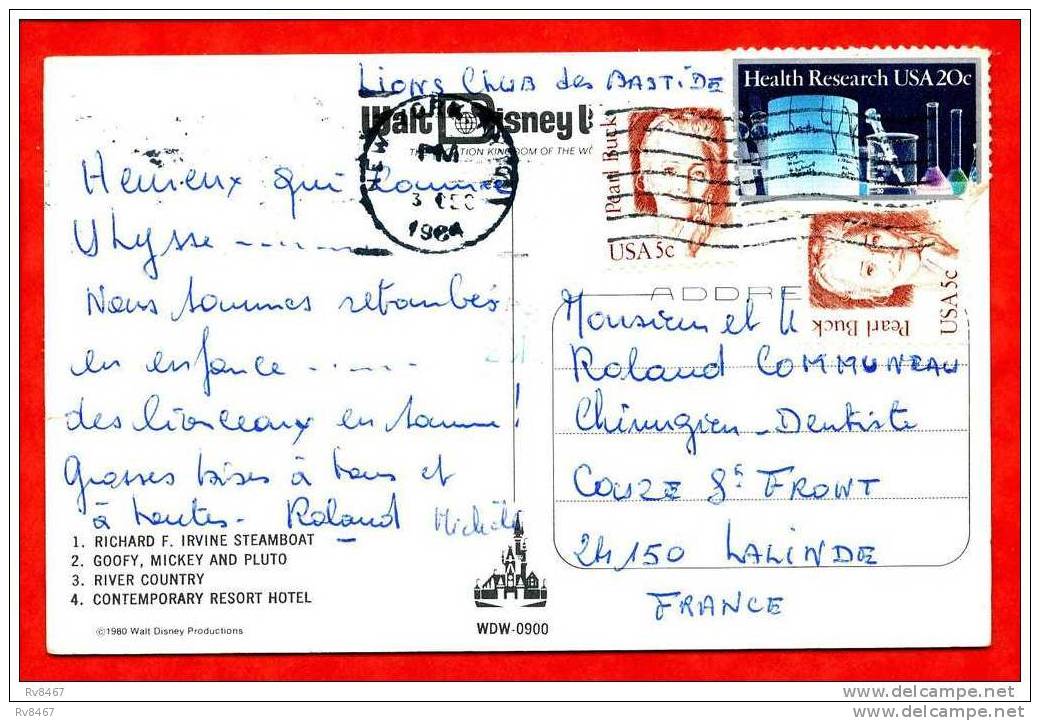 Lions Club des BASTIDE
Walt Disney
Health Research USA 20c
Pearl Buck
USA 5c
Pearl Buck
USA 5c
PM
3 DEC
1984
Heureux qui comme
Ulysse ........
Nous sommes retombés
en enfance .....
des lionceaux en somme!
Grosses bises à tous et
à toutes - Roland Michèle
ADDRE
Monsieur et M
Roland COMMUNEAU
Chirurgien-Dentiste
COUZE St FRONT
24150 LALINDE
FRANCE
1. RICHARD F. IRVINE STEAMBOAT
2. GOOFY, MICKEY AND PLUTO
3. RIVER COUNTRY
4. CONTEMPORARY RESORT HOTEL
©1980 Walt Disney Productions
WDW-0900
Rv8467
Rv8467
www.delcampe.net
www.delcampe.net